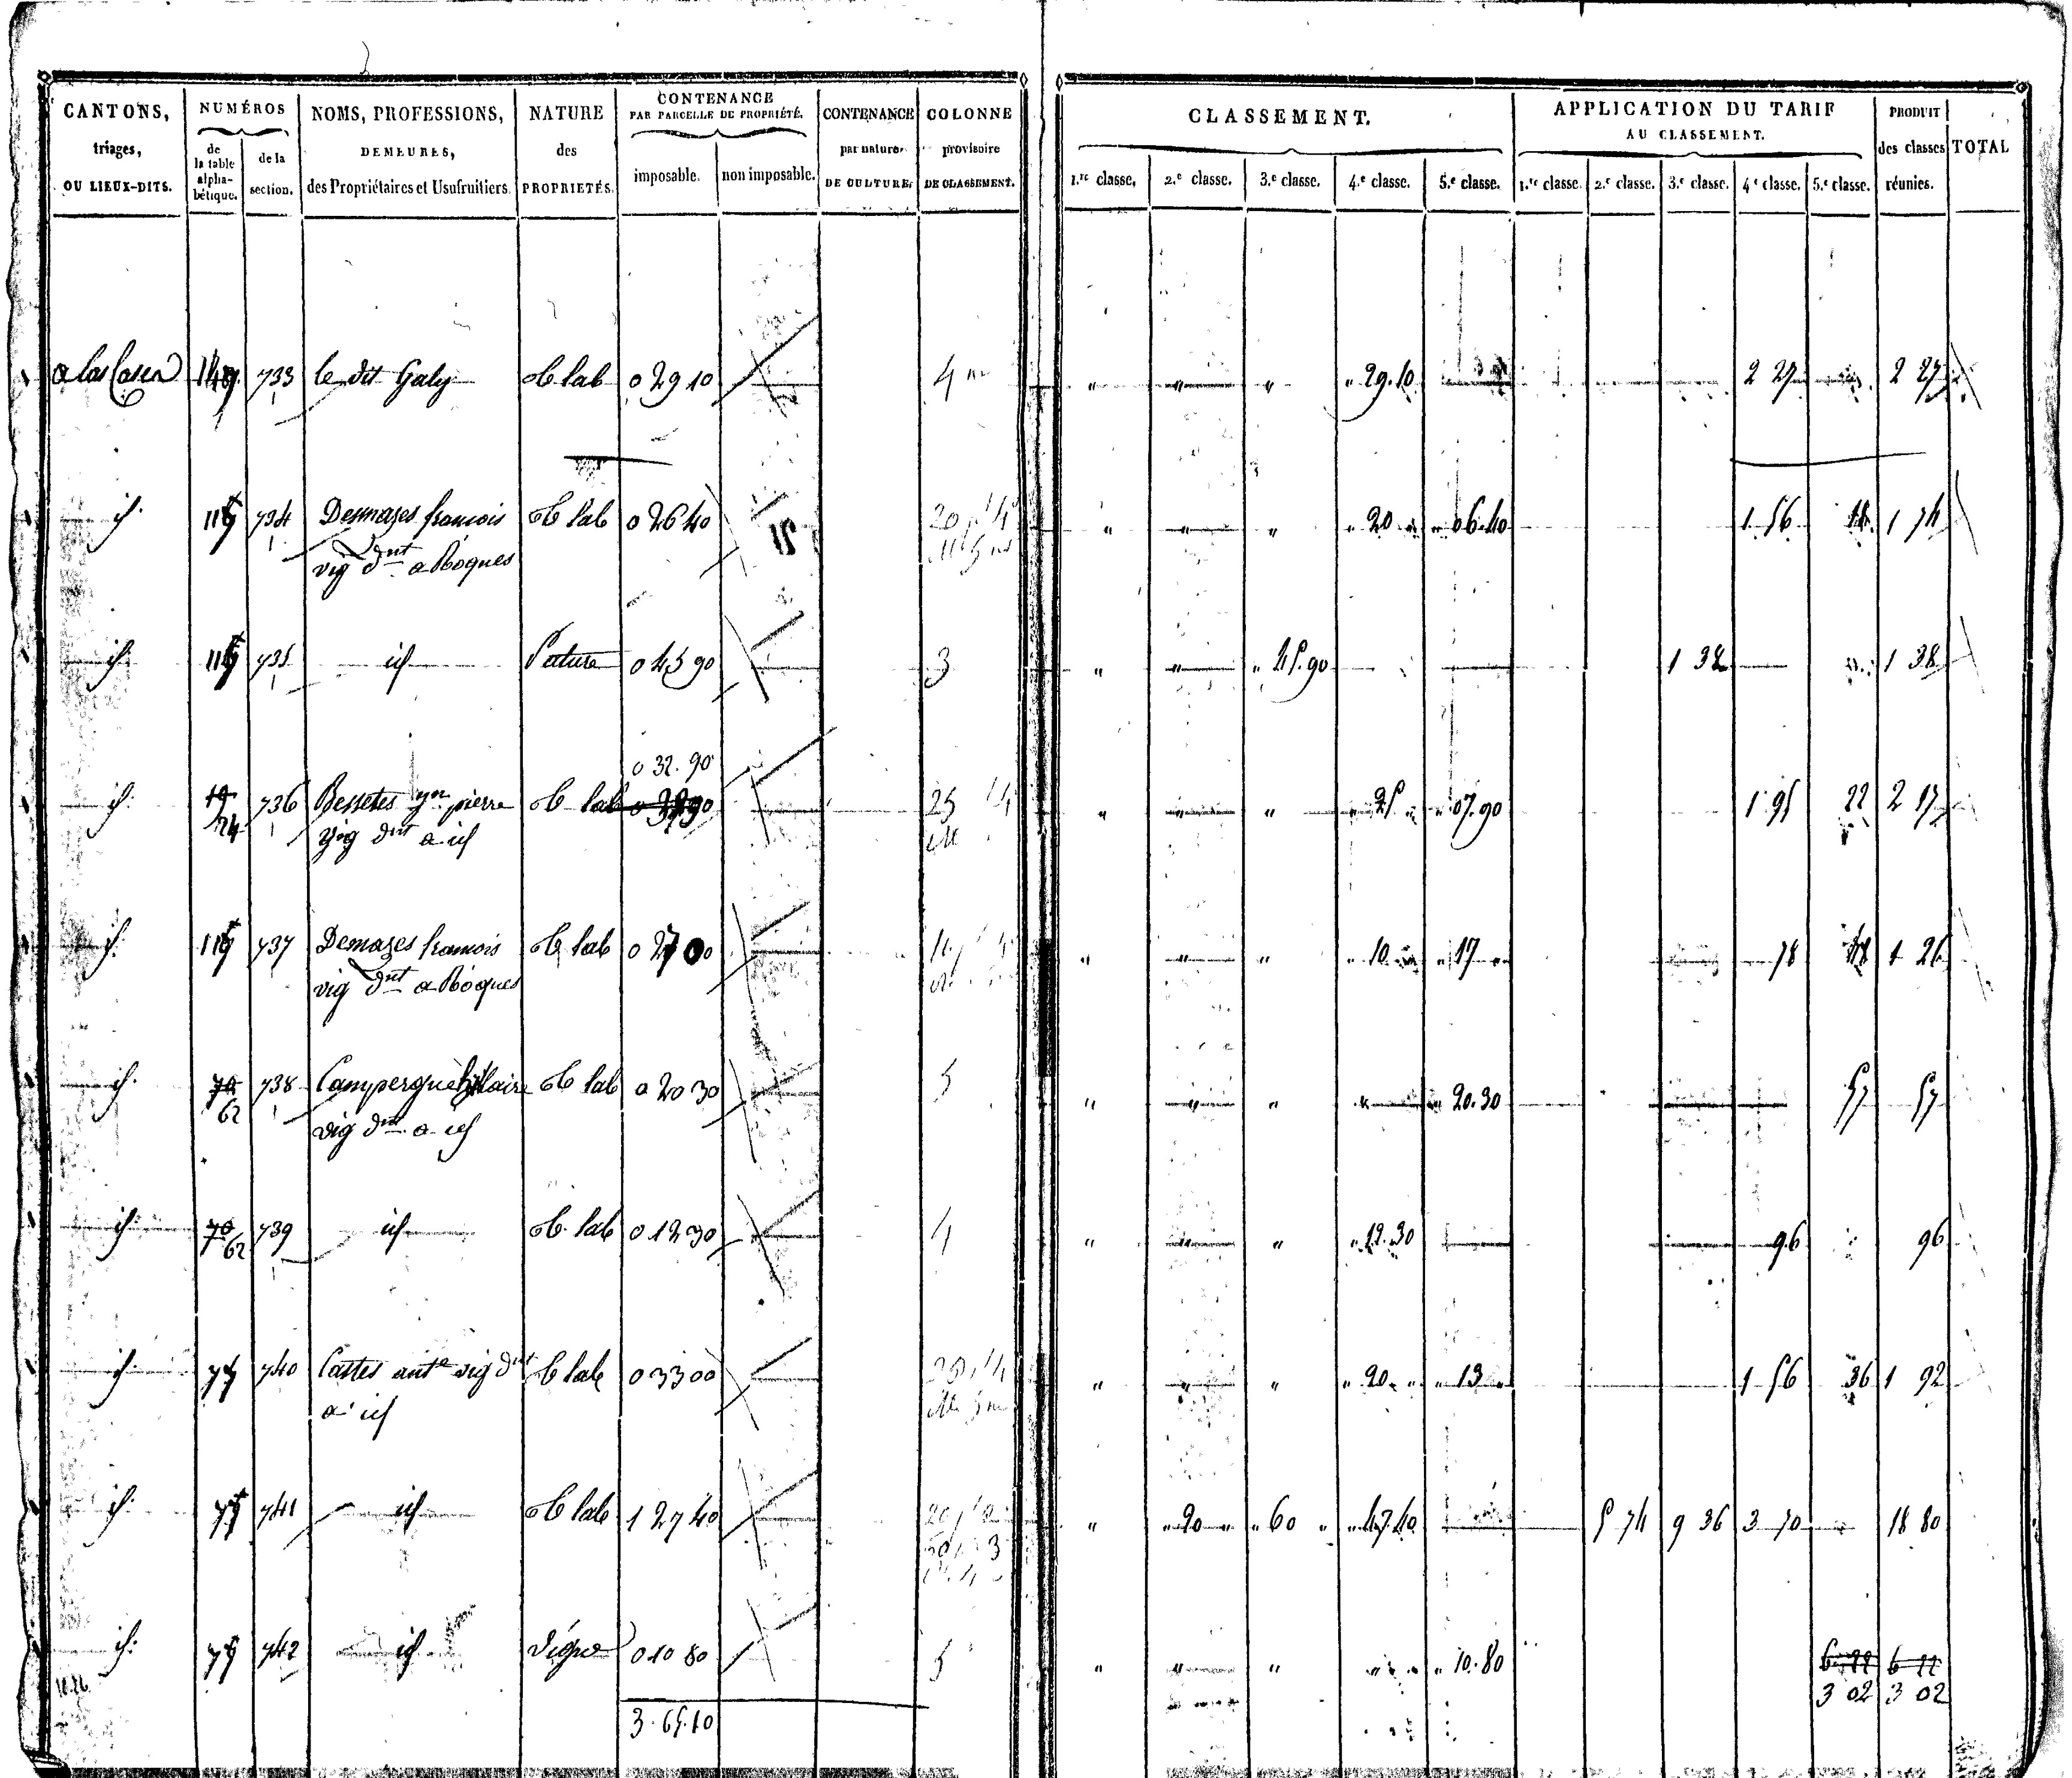 CANTONS, triages, OU LIEUX-DITS. | NUMÉROS de la table alpha-bétique. | de la section. | NOMS, PROFESSIONS, DEMEURES, des Propriétaires et Usufruitiers. | NATURE des PROPRIETÉS. | CONTENANCE PAR PARCELLE DE PROPRIÉTÉ. imposable. | non imposable. | CONTENANCE par nature DE CULTURE. | COLONNE provisoire DE CLASSEMENT. | CLASSEMENT. 1.re classe. | 2.e classe. | 3.e classe. | 4.e classe. | 5.e classe. | APPLICATION DU TARIF AU CLASSEMENT. 1.re classe. | 2.e classe. | 3.e classe. | 4.e classe. | 5.e classe. | PRODUIT des classes réunies. | TOTAL
a las 733 le dit Galy lab 0 29 10 4 " " " " 29.10 2 27 2 27
id. 734 Desmazes francois lab 0 26 40 20 " " " " 20 " " 06.40 1 56 18 1 74
vig dnt a Roques
id. 735 id Pature 0 45 90 3 " " " 45.90 1 38 1 38
0 32.90
id. 24 736 Bessetes pierre lab 25 " " " " 25 " " 07.90 1 95 22 2 17
vig dnt a id
id. 737 Demazes francois lab 0 27 00 " " " " 10 " " 17 " 78 48 1 26
vig dnt a Roques
id. 70 62 738 Campergue hilaire lab 0 20 30 5 " " " " " 20.30 57 57
vig dnt a id
id. 70 62 739 id lab 0 12 30 4 " " " " 12.30 96 96
id. 740 Castes ante vig dnt lab 0 33 00 " " " " 20 " " 13 " 1 56 36 1 92
a id
id. 741 id lab 1 27 40 " " 20 " " 60 " " 47.40 5 74 9 36 3 70 18 80
id. 742 id Vigne 0 10 80 5 " " " " " 10.80 6 22 6 22
3 02 3 02
3.65.10